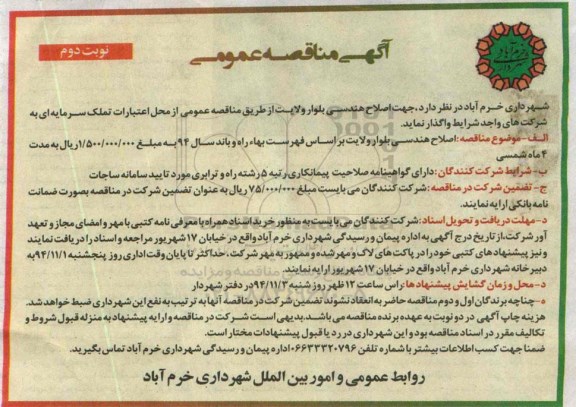 آگهی مناقصه عمومی
نوبت دوم
شهرداری خرم آباد در نظر دارد، جهت اصلاح هندسی بلوار ولایت از طریق مناقصه عمومی از محل اعتبارات تملک سرمایه ای به
شرکت های واجد شرایط واگذار نماید.
الف- موضوع مناقصه: اصلاح هندسی بلوار ولایت بر اساس فهرست بهاء راه و باند سال ۹۴ به مبلغ ۱/۵۰۰/۰۰۰/۰۰۰ ریال به مدت
۴ ماه شمسی
ب- شرایط شرکت کنندگان: دارای گواهینامه صلاحیت پیمانکاری رتبه ۵ رشته راه و ترابری مورد تایید سامانه ساجات
ج- تضمین شرکت در مناقصه: شرکت کنندگان می بایست مبلغ ۷۵/۰۰۰/۰۰۰ ریال به عنوان تضمین شرکت در مناقصه بصورت ضمانت
نامه بانکی ارایه نمایند.
د- مهلت دریافت و تحویل اسناد: شرکت کنندگان می بایست به منظور خرید اسناد همراه با معرفی نامه کتبی با مهر و امضای مجاز و تعهد
آور شرکت، از تاریخ درج آگهی به اداره پیمان و رسیدگی شهرداری خرم آباد واقع در خیابان ۱۷ شهریور مراجعه و اسناد را دریافت نمایند
و نیز پیشنهادهای کتبی خود را در پاکت های لاک و مهر شده و ممهور به مهر شرکت، حداکثر تا پایان وقت اداری روز پنجشنبه ۹۴/۱۱/۱ به
دبیرخانه شهرداری خرم آباد واقع در خیابان ۱۷ شهریور ارایه نمایند.
د- محل و زمان گشایش پیشنهادها: راس ساعت ۱۲ ظهر روز شنبه ۹۴/۱۱/۳ در دفتر شهردار
ه- چنانچه برندگان اول و دوم مناقصه حاضر به انعقاد نشوند تضمین شرکت در مناقصه آنها به ترتیب به نفع این شهرداری ضبط خواهد شد.
هزینه چاپ آگهی در دو نوبت به عهده برنده مناقصه می باشد. بدیهی است شرکت در مناقصه و ارایه پیشنهاد به منزله قبول شروط و
تکالیف مقرر در اسناد مناقصه بود و این شهرداری در رد یا قبول پیشنهادات مختار است.
ضمنا جهت کسب اطلاعات بیشتر با شماره تلفن ۰۶۶۳۳۳۲۰۷۹۶ اداره پیمان و رسیدگی شهرداری خرم آباد تماس بگیرید.
روابط عمومی و امور بین الملل شهرداری خرم آباد